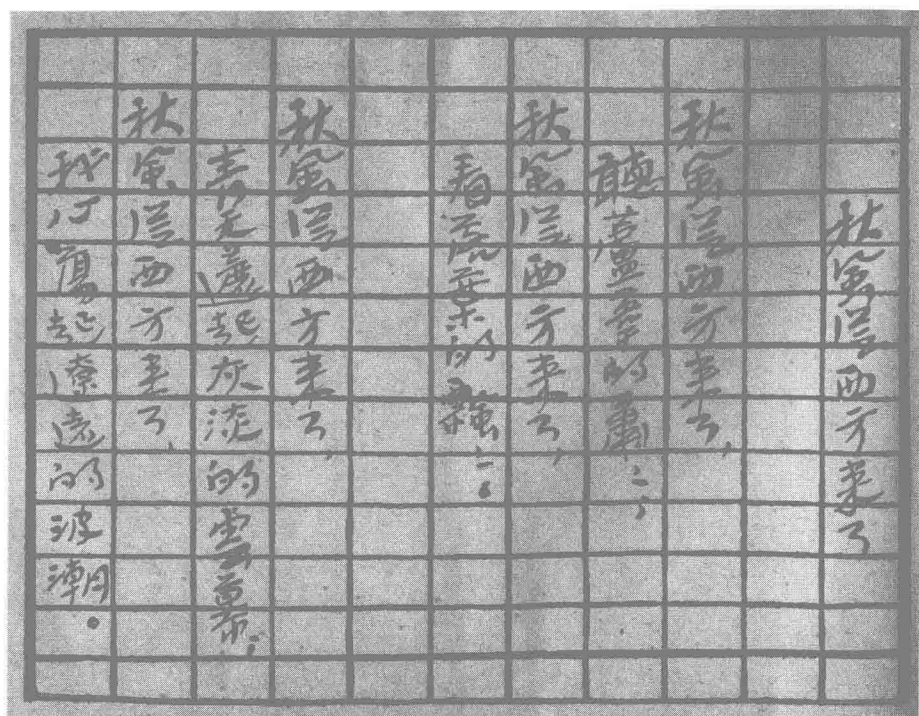 秋風從西方來了
秋風從西方來了,
聽蘆葦的蕭ㄑ,
秋風從西方來了,
看落葉的飄ㄑ。
秋風從西方來了,
青天遮起灰淡的雲幕;
秋風從西方來了,
我心蕩起遼遠的波潮。